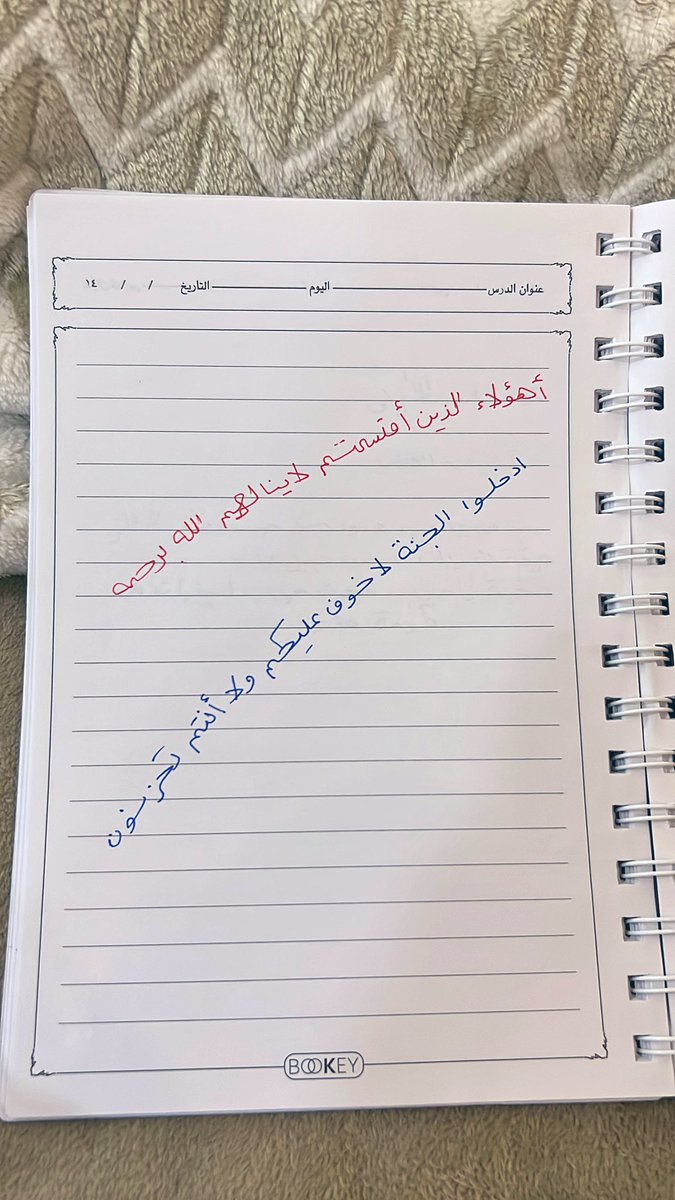 عنوان الدرس اليوم التاريخ / / ١٤
أهؤلاء الذين أقسمتم لا ينالهم الله برحمه
ادخلوا الجنة لا خوف عليكم ولا أنتم تحزنون
BOOKEY